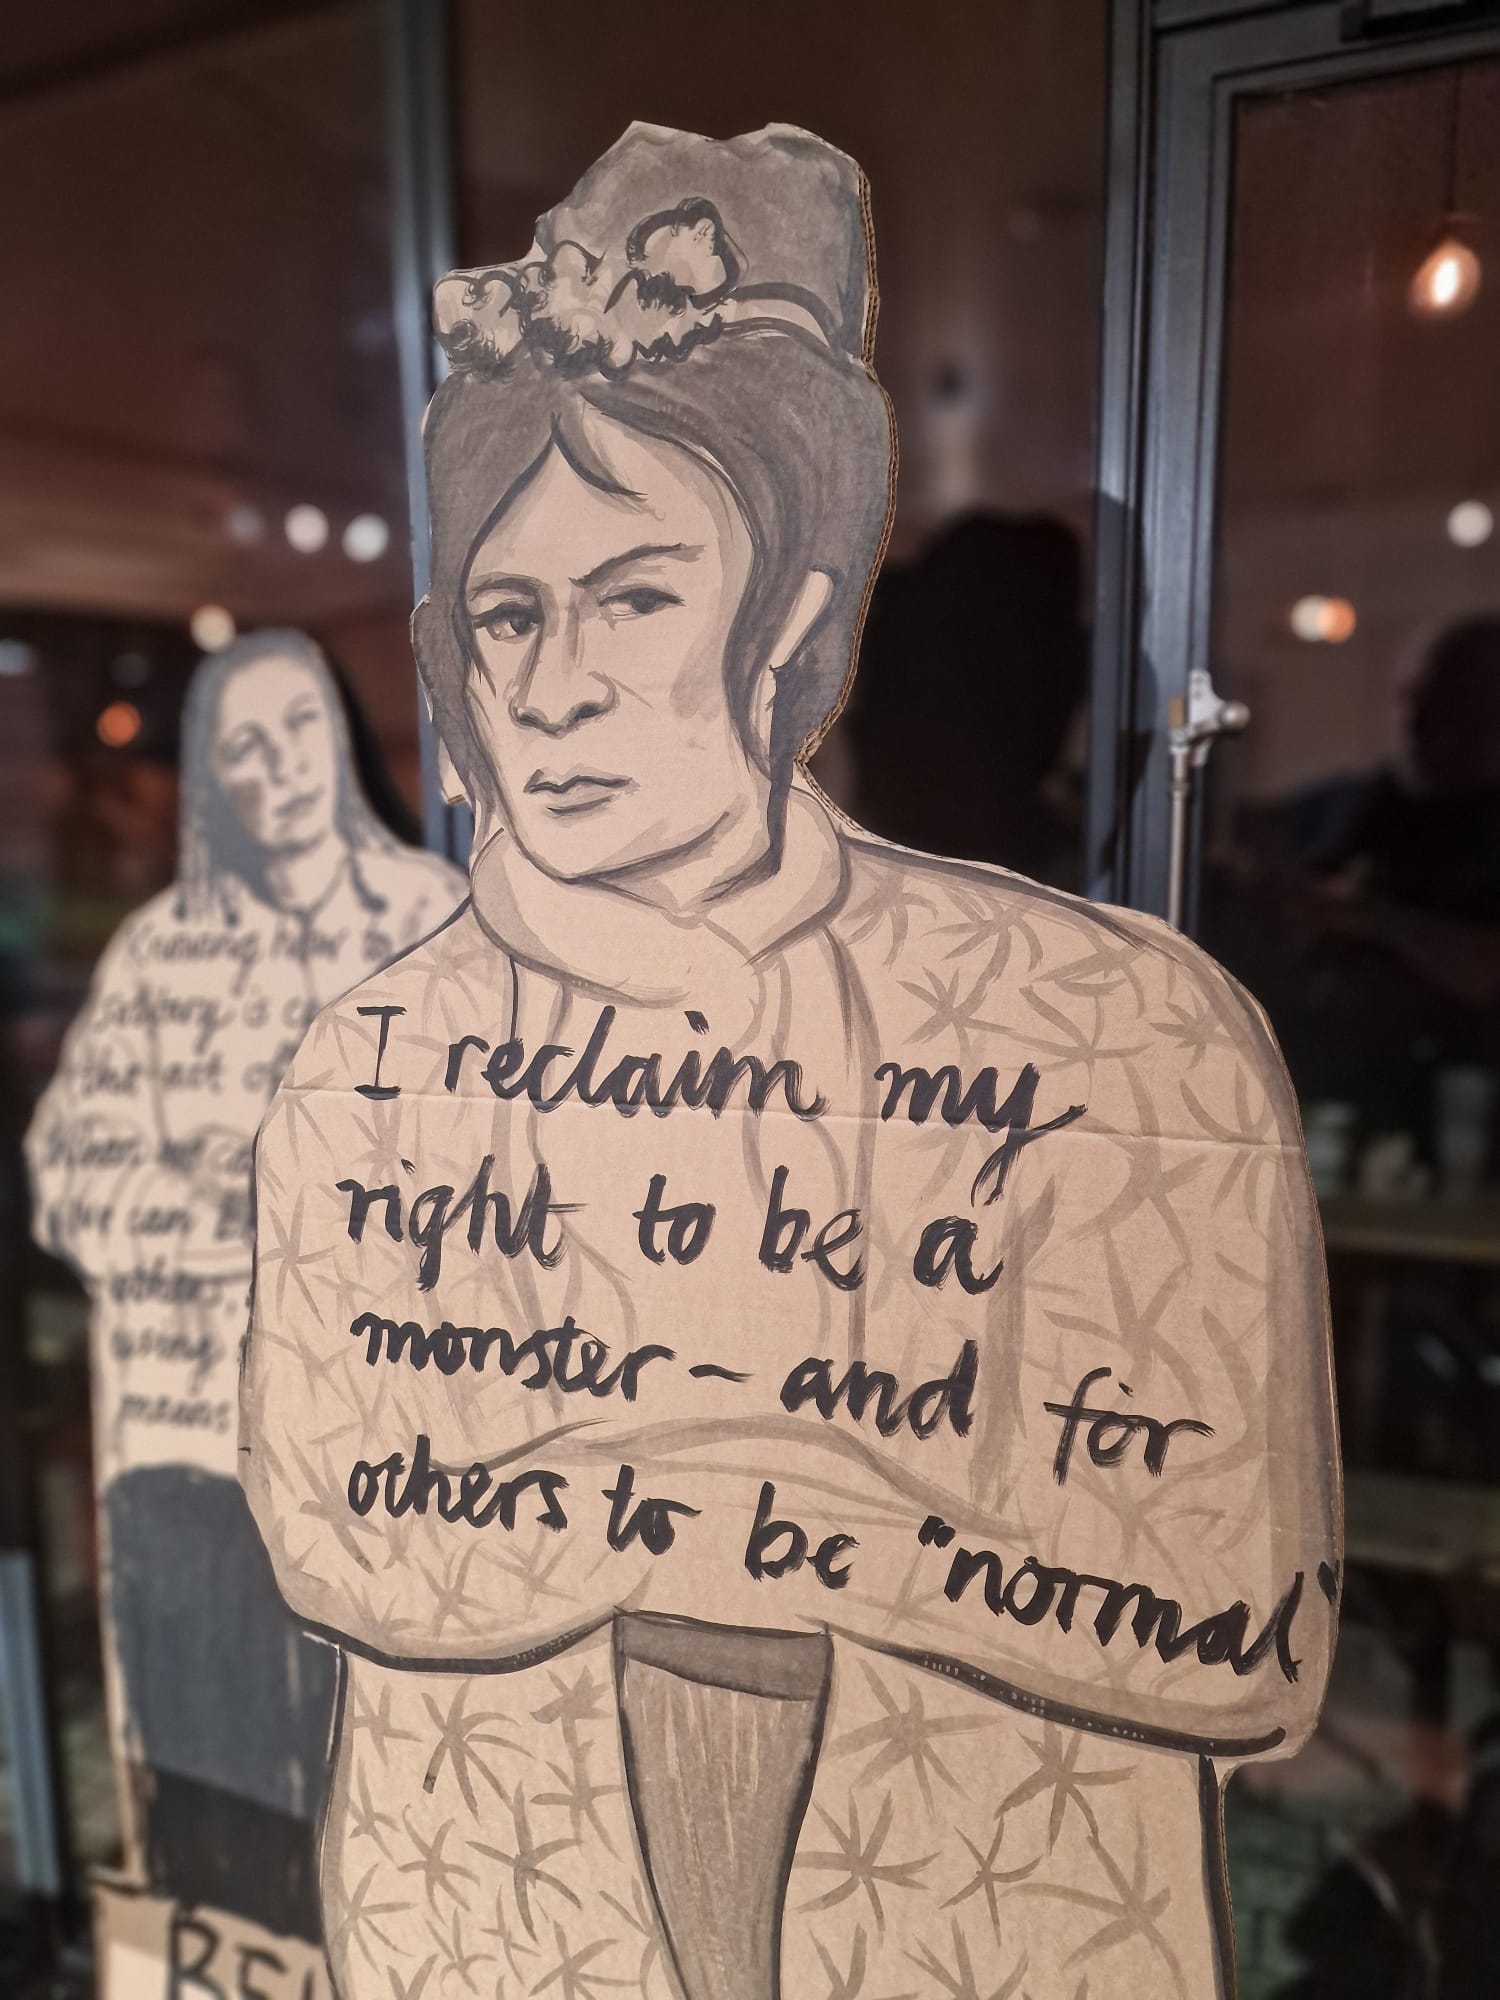 I reclaim my
right to be a
monster – and for
others to be "normal"
Knowing how to
solitary is
the act of
we can
others,
using
means